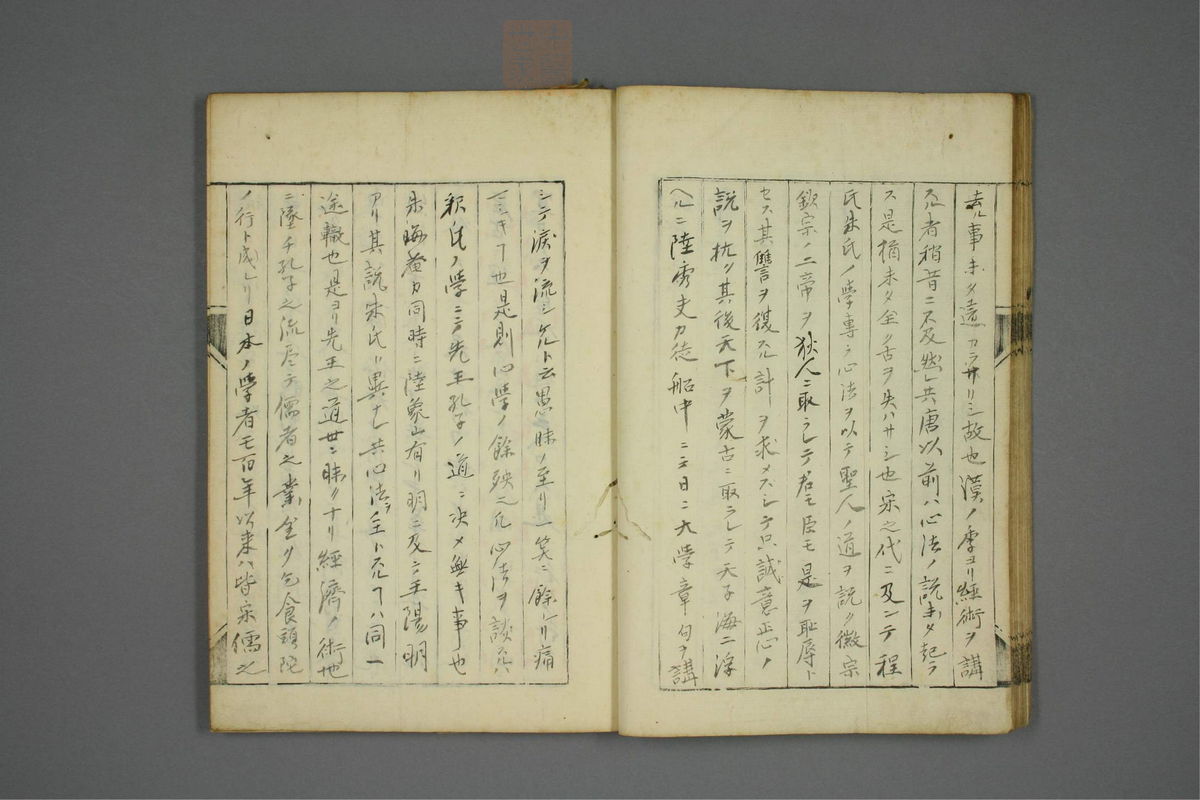 去ル事未タ遠カラサリシ故也漢ノ季ヨリ経術ヲ講
スル者稍昔ニ不及然レ共唐以前ハ心法ノ説未タ起ラ
ス是猶未タ全ク古ヲ失ハサシ也宋之代ニ及ンテ程
氏朱氏ノ學専ラ心法ヲ以テ聖人ノ道ヲ説ク徽宗
欽宗ノ二帝ヲ狄人ニ取ラレテ君モ臣モ是ヲ恥辱ト
セス其讐ヲ復スル計ヲ求メスシテ只誠意正心ノ
説ヲ抗ク其後天下ヲ蒙古ニ取ラレテ天子海ニ浮
ヘルニ陸秀夫カ徒船中ニテ日ニ大學章句ヲ講
シテ涙ヲ流シタルト云愚昧ノ至リ一笑ニ餘レリ痛
ムヘキ也是則心學ノ餘殃也凡心法ヲ談スルハ
釈氏ノ學ニテ先王孔子ノ道ニ决メ無キ事也
朱晦菴カ同時ニ陸象山有リ明ニ及テ王陽明
アリ其説朱氏ニ異ナレ共心法ヲ主トスルハ同一
途轍也是ヨリ先王之道世ニ昧クナリ經濟ノ術地
ニ墜チ孔子之流尽テ儒者之業全ク乞食頭陀
ノ行ト成レリ日本ノ學者モ百年以来ハ皆宋儒之